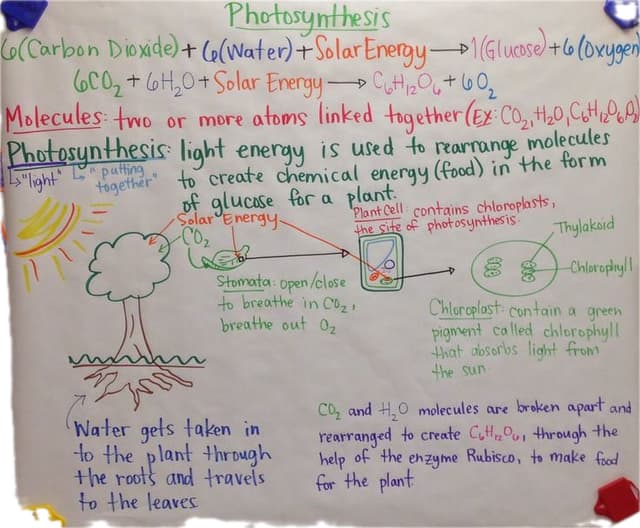 Photosynthesis
6(Carbon Dioxide) + 6(Water) + Solar Energy → 1(Glucose) + 6(Oxygen
6CO₂ + 6H₂O + Solar Energy → C₆H₁₂O₆ + 6O₂
Molecules: two or more atoms linked together (Ex: CO₂, H₂O, C₆H₁₂O₆, O₂)
Photosynthesis: light energy is used to rearrange molecules
↳ "light" ↳ "putting together"
to create chemical energy (food) in the form
of glucose for a plant.
Solar Energy
CO₂
Plant Cell: contains chloroplasts,
the site of photosynthesis.
Thylakoid
Chlorophyll
Stomata: open/close
to breathe in CO₂,
breathe out O₂
Chloroplast: contain a green
pigment called chlorophyll
that absorbs light from
the sun.
Water gets taken in
to the plant through
the roots and travels
to the leaves
CO₂ and H₂O molecules are broken apart and
rearranged to create C₆H₁₂O₆, through the
help of the enzyme Rubisco, to make food
for the plant.